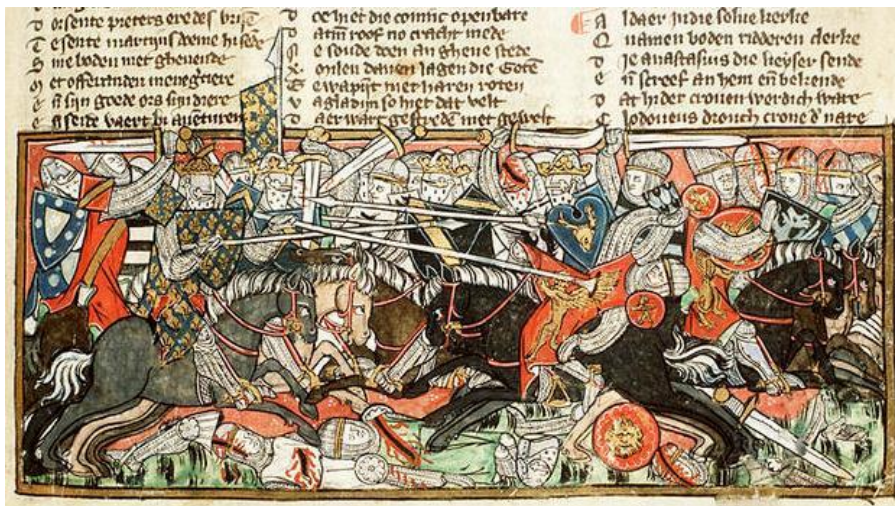 D orsente pieters ere des
T e sente martijns dome hi sede
S ine boden met ghevende
M et offeranden
e n sijn goede ors sijn diere
e n seide vaert bi aventuren
D oe hiet die coninc openbare
D atmen roof no cracht mede
N e soude doen an ghene stede
X milen danen lagen die Goten
G ewapijt met haren roten
V agladijn so hiet dat velt
D aer wart gestreden met gewelt
A ldaer in die selve kerke
Q uamen boden ridderen clerke
D ie anastasius die keyser sende
e n screef an hem en bekende
D at hi der cronen werdich ware
C lodoveus drouch crone d' nare